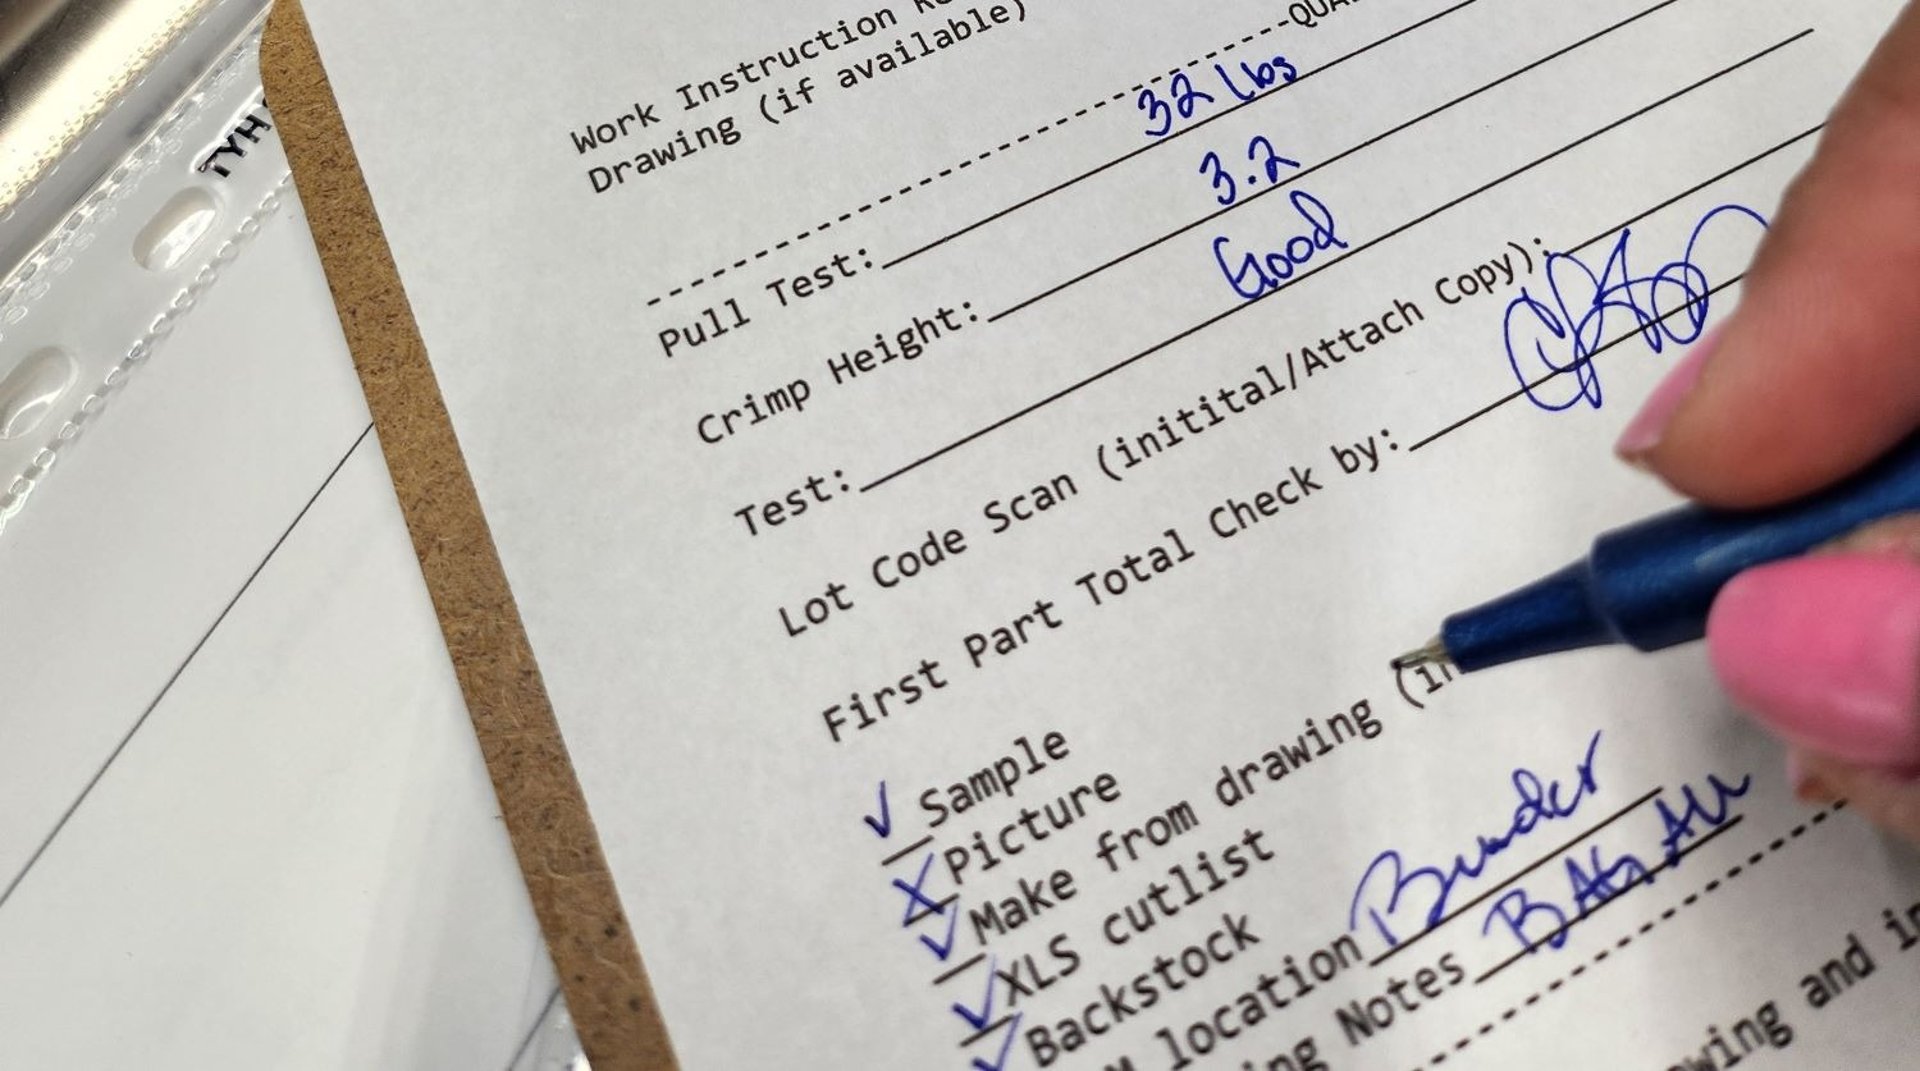 TYH
Work Instruction
Drawing (if available)
QUA
Pull Test: 32 lbs
Crimp Height: 3.2
Test: Good
Lot Code Scan (initital/Attach Copy):
First Part Total Check by:
✓ Sample
X Picture
✓ Make from drawing (in
✓ XLS cutlist
✓ Backstock
location Binder
ing Notes
wing and in